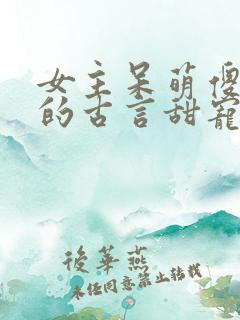 女主呆萌傻
的古言甜寵
後華燕
未經同意禁止轉載